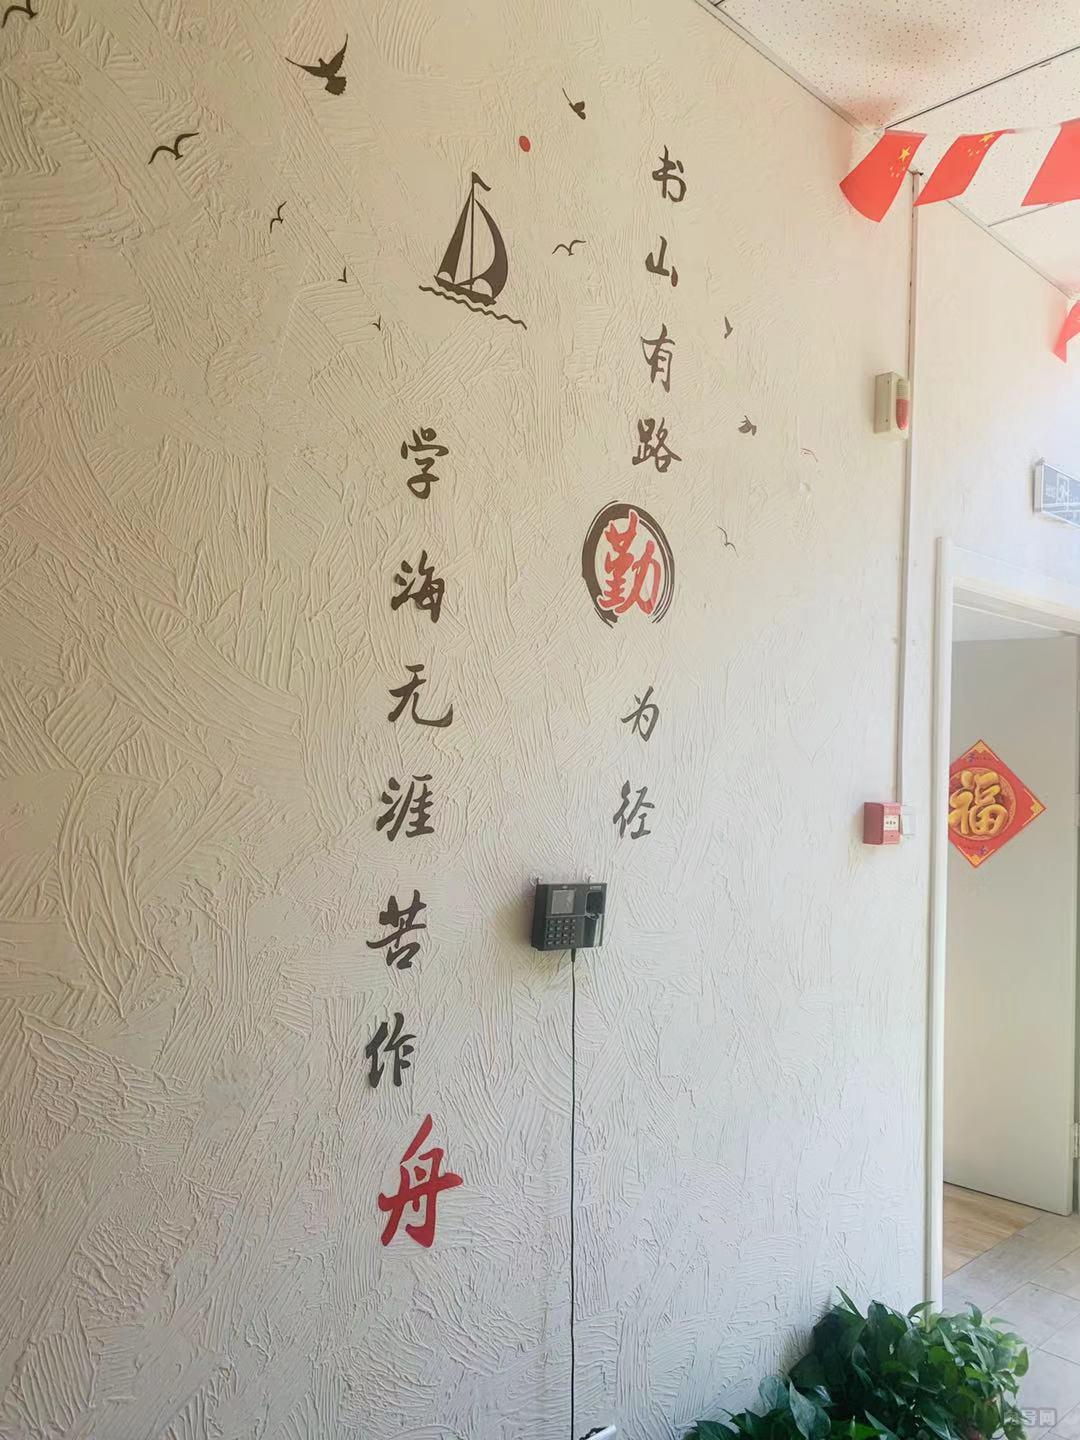 书山有路勤为径
学海无涯苦作舟
福